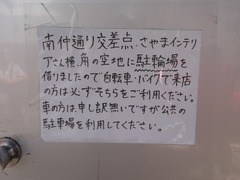 南仲通り交差点、さやまインテリ
アさん横、角の空地に駐輪場を
借りましたので自転車・バイクで来店
の方は必ずそちらをご利用ください。
車の方は、申し訳無いですが公共の
駐車場を利用してください。